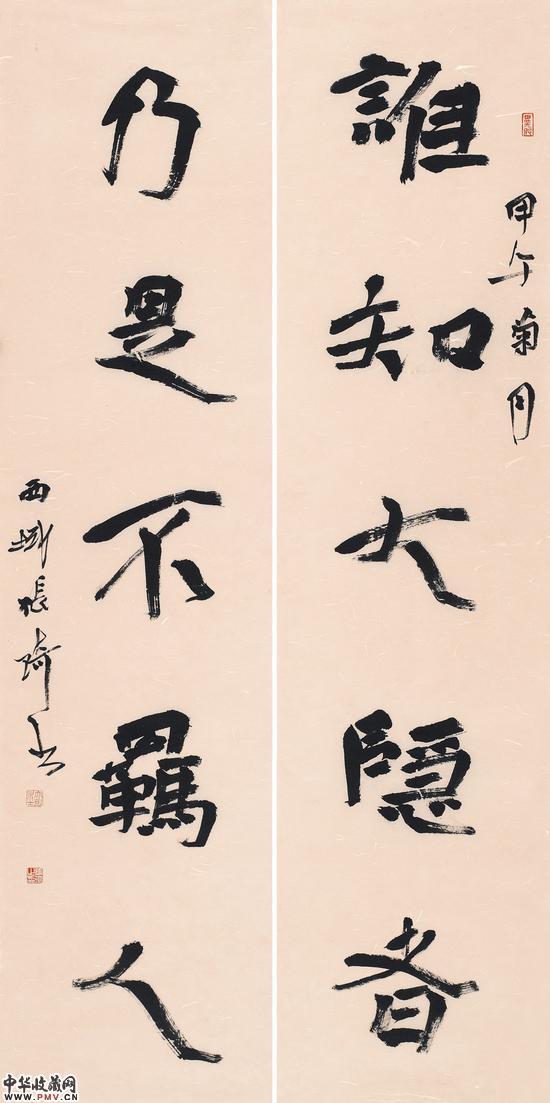 甲午菊月
誰知大隱者
乃是不羈人
西域張琦書
中华收藏网
www.PMV.CN